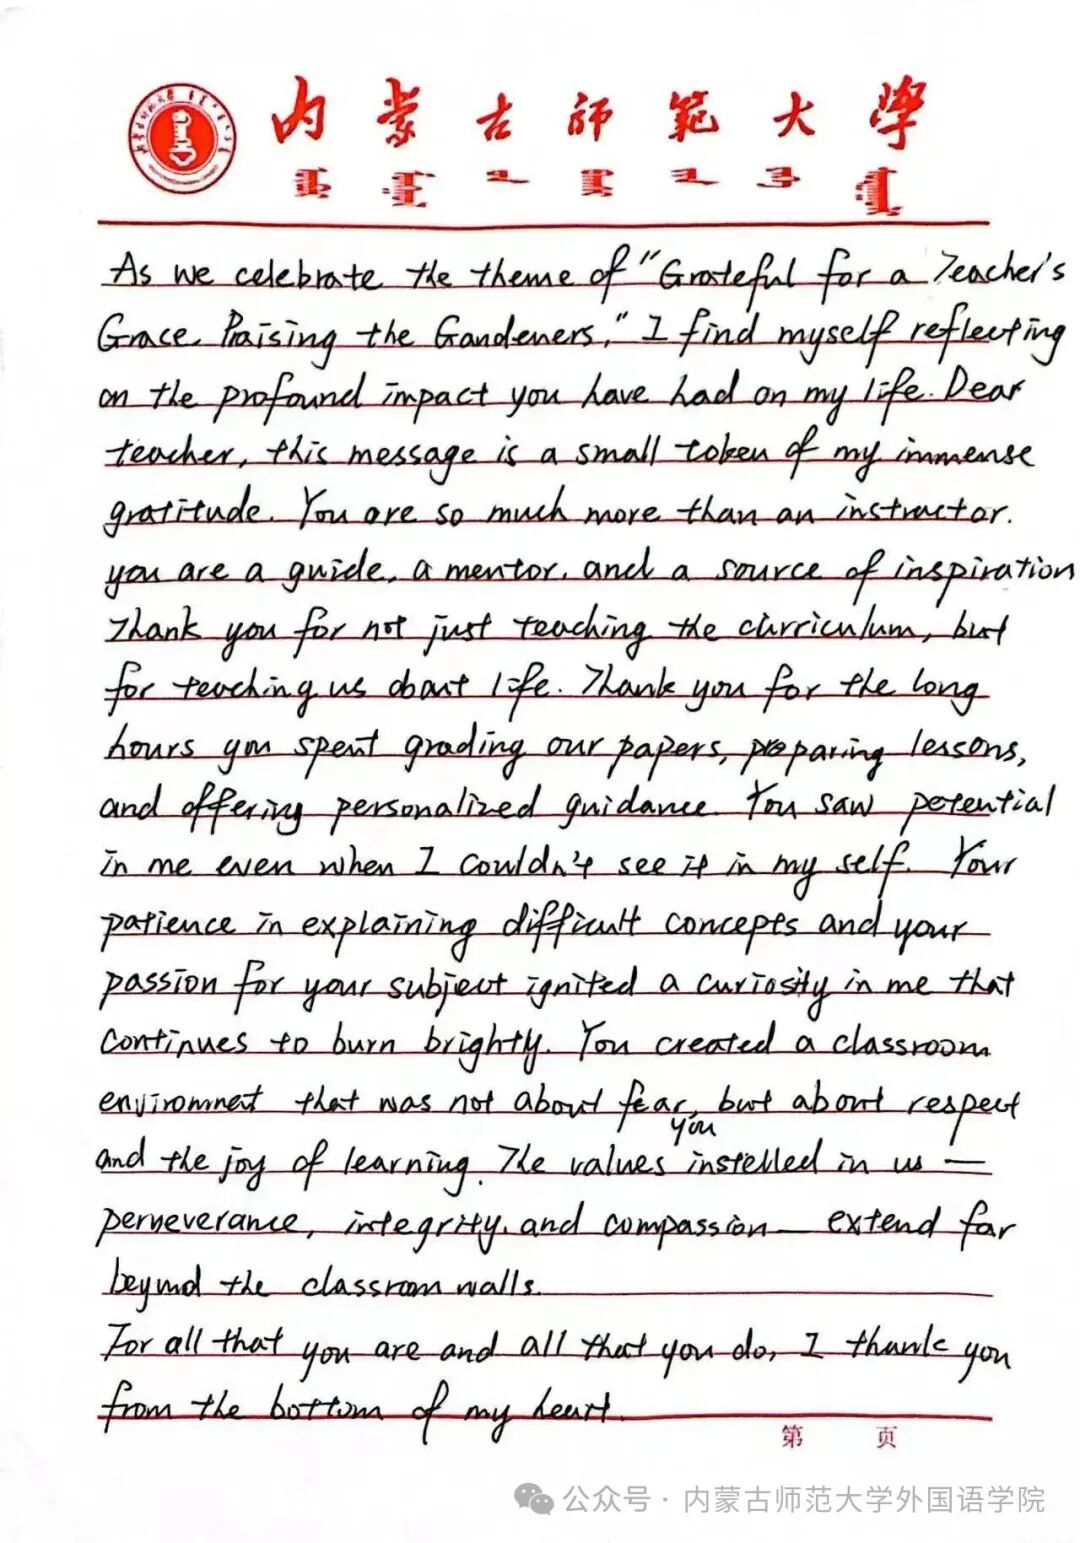 内蒙古师范大学
As we celebrate the theme of "Grateful for a Teacher's
Grace, Praising the Gandeners," I find myself reflecting
on the profound impact you have had on my life. Dear
teacher, this message is a small token of my immense
gratitude. You are so much more than an instructor.
you are a guide, a mentor, and a source of inspiration
Thank you for not just teaching the curriculum, but
for teaching us about life. Thank you for the long
hours you spent grading our papers, preparing lessons,
and offering personalized guidance. You saw potential
in me even when I couldn't see it in my self. Your
patience in explaining difficult concepts and your
passion for your subject ignited a curiosity in me that
continues to burn brightly. You created a classroom
environment that was not about fear, but about respect
and the joy of learning. The values you instelled in us —
perseverance, integrity, and compassion — extend far
beyond the classroom walls.
For all that you are and all that you do, I thank you
from the bottom of my heart.
第 页
公众号 · 内蒙古师范大学外国语学院